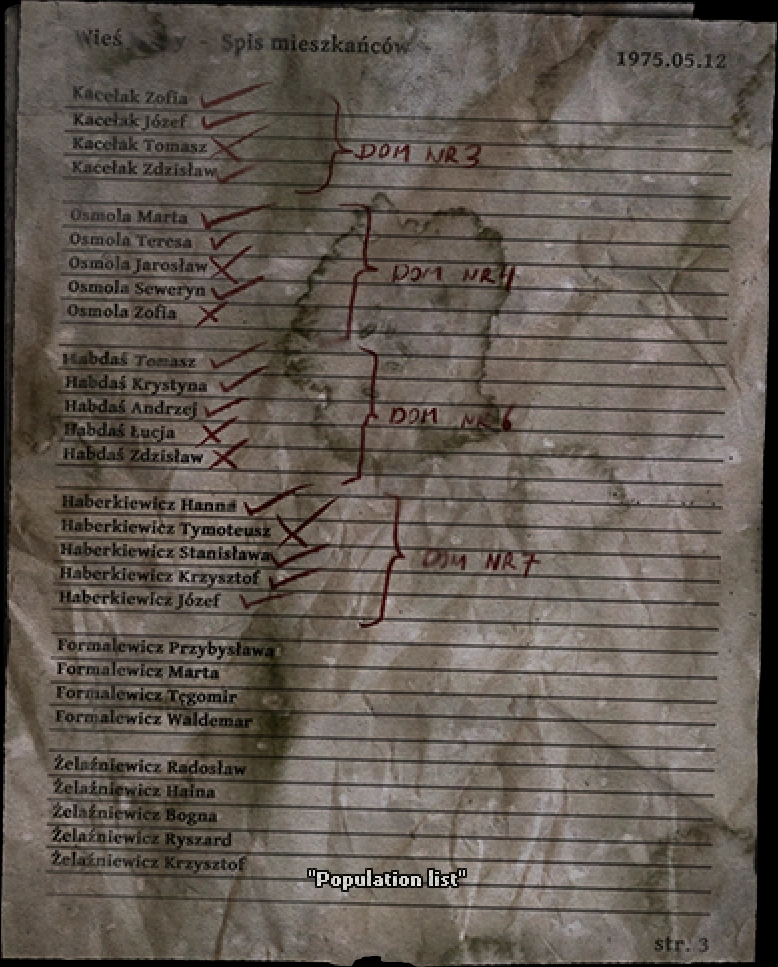 Wieś y - Spis mieszkańców
1975.05.12
Kacełak Zofia
Kacełak Józef
Kacełak Tomasz
Kacełak Zdzisław
DOM NR 3
Osmola Marta
Osmola Teresa
Osmola Jarosław
Osmola Seweryn
Osmola Zofia
DOM NR 4
Habdaś Tomasz
Habdaś Krystyna
Habdaś Andrzej
Habdaś Łucja
Habdaś Zdzisław
DOM NR 6
Haberkiewicz Hanna
Haberkiewicz Tymoteusz
Haberkiewicz Stanisława
Haberkiewicz Krzysztof
Haberkiewicz Józef
DOM NR 7
Formalewicz Przybysława
Formalewicz Marta
Formalewicz Tęgomir
Formalewicz Waldemar
Żelaźniewicz Radosław
Żelaźniewicz Haina
Żelaźniewicz Bogna
Żelaźniewicz Ryszard
Żelaźniewicz Krzysztof
"Population list"
str. 3